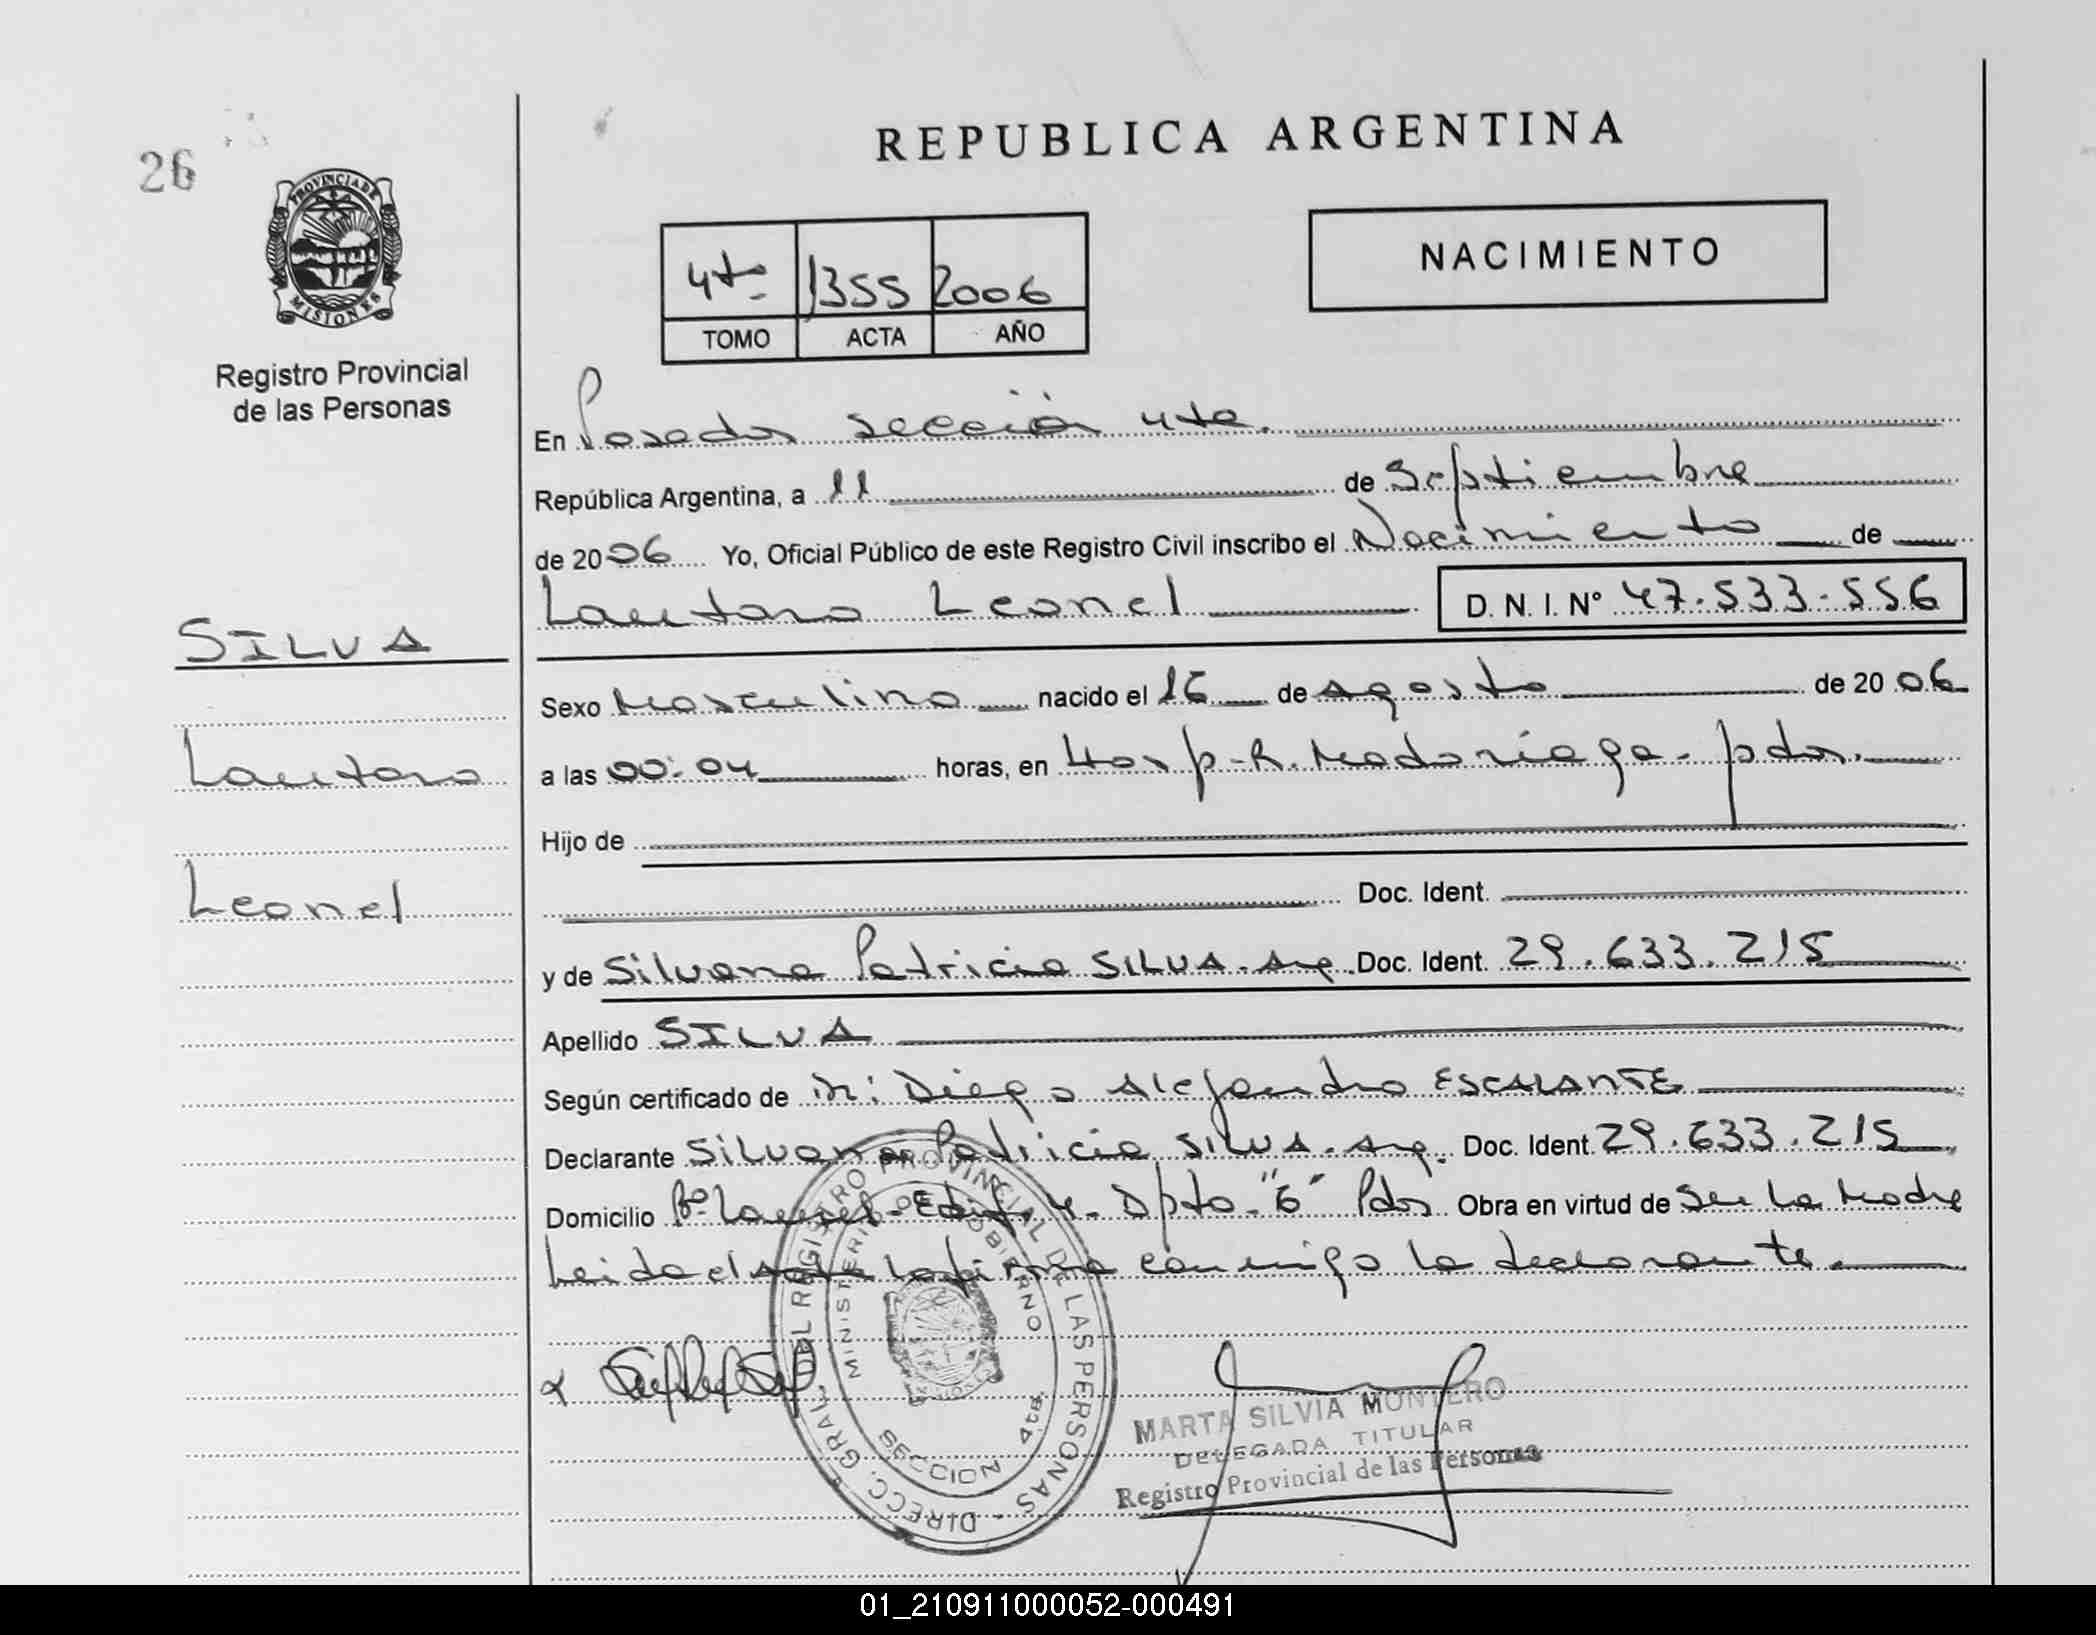 REPUBLICA ARGENTINA
26
PROVINCIA DE
MISIONES
Registro Provincial
de las Personas
NACIMIENTO
4to 1355 2006
TOMO ACTA AÑO
En Posadas sección 4ta.
República Argentina, a 11 de Septiembre
de 2006 Yo, Oficial Público de este Registro Civil inscribo el Nacimiento de
Lautaro Leonel D. N. I. N° 47.533.556
SILVA
Sexo Masculino nacido el 16 de agosto de 2006
Lautaro
a las 00:04 horas, en Hosp-R. Madariaga- pdas.
Hijo de
Leonel
Doc. Ident.
y de Silvana Patricia SILVA. Arg. Doc. Ident. 29.633.215
Apellido SILVA
Según certificado de Dr: Diego Alejandro ESCALANTE
Declarante Silvana Patricia SILVA. Arg. Doc. Ident. 29.633.215
Domicilio Bº Laurel- Edif. 4. Dpto. "6" Pdas Obra en virtud de Ser La Madre
Leida el acta la firma conmigo la declarante.
DIRECC. GRAL. DEL REGISTRO PROVINCIAL DE LAS PERSONAS
MINISTERIO DE GOBIERNO
SECCION 4ta.
MARTA SILVIA MONTERO
DELEGADA TITULAR
Registro Provincial de las Personas
01_210911000052-000491